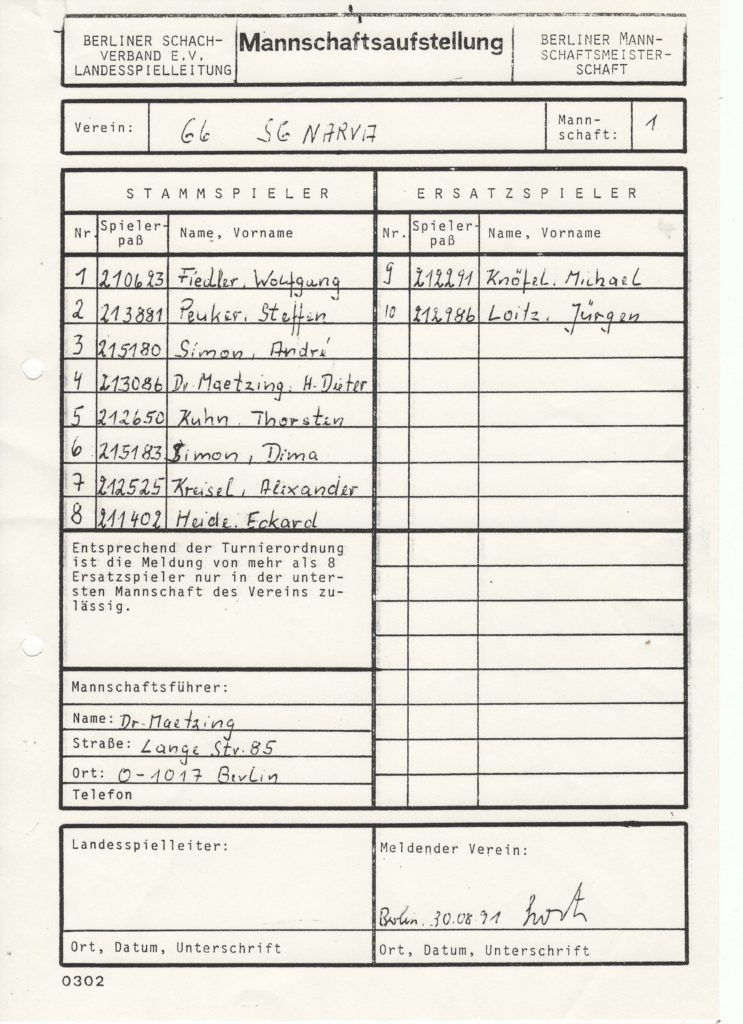 BERLINER SCHACH-
VERBAND E.V.
LANDESSPIELLEITUNG
Mannschaftsaufstellung
BERLINER MANN-
SCHAFTSMEISTER-
SCHAFT
Verein: 66 SG NARVA
Mann-
schaft: 1
STAMMSPIELER
Nr. Spieler-
paß Name, Vorname
1 210623 Fiedler, Wolfgang
2 213881 Peuker, Steffen
3 215180 Simon, André
4 213086 Dr. Maetzing, H. Dieter
5 212650 Kuhn, Thorsten
6 215183 Simon, Dima
7 212525 Kreisel, Alexander
8 211402 Heide, Eckard
Entsprechend der Turnierordnung
ist die Meldung von mehr als 8
Ersatzspieler nur in der unter-
sten Mannschaft des Vereins zu-
lässig.
Mannschaftsführer:
Name: Dr. Maetzing
Straße: Lange Str. 85
Ort: O-1017 Berlin
Telefon
ERSATZSPIELER
Nr. Spieler-
paß Name, Vorname
9 212291 Knöfel, Michael
10 212986 Loitz, Jürgen
Landesspielleiter:
Ort, Datum, Unterschrift
Meldender Verein:
Berlin, 30.08.91
Ort, Datum, Unterschrift
0302